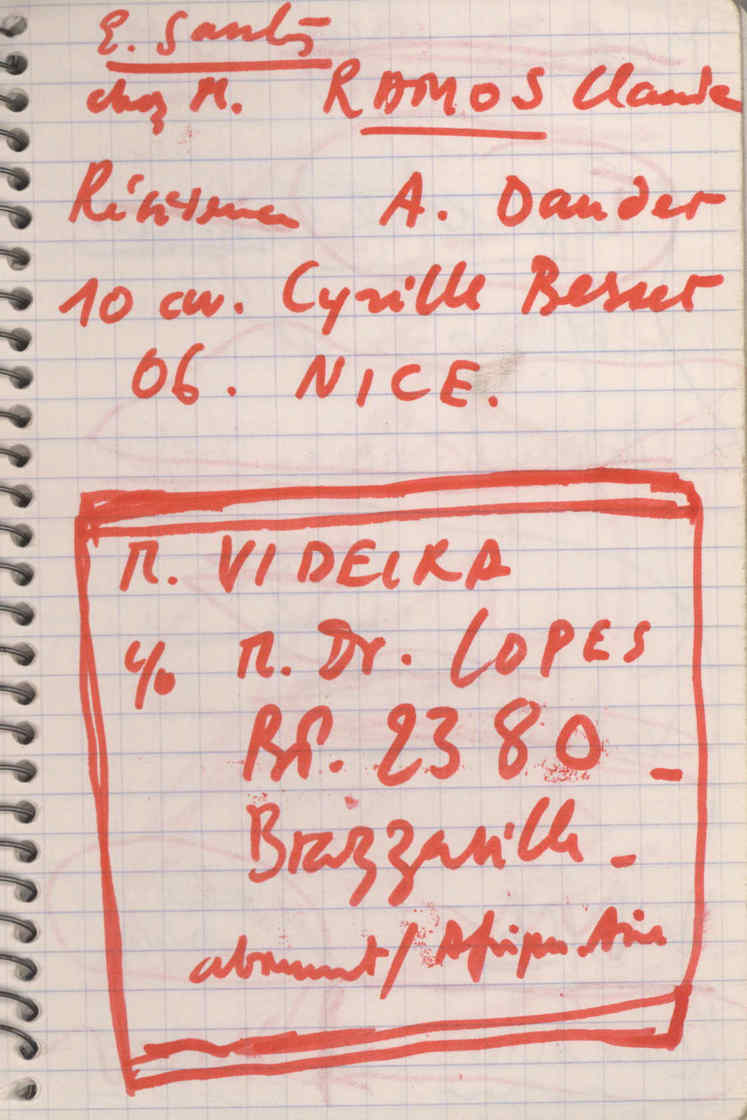 E. Santos
chez M. RAMOS Claude
Résidence A. Daudet
10 av. Cyrille Besset
06. NICE.
M. VIDEIRA
c/o M. Dr. LOPES
BP. 2380 -
Brazzaville -
abonnement/Afrique. Asie